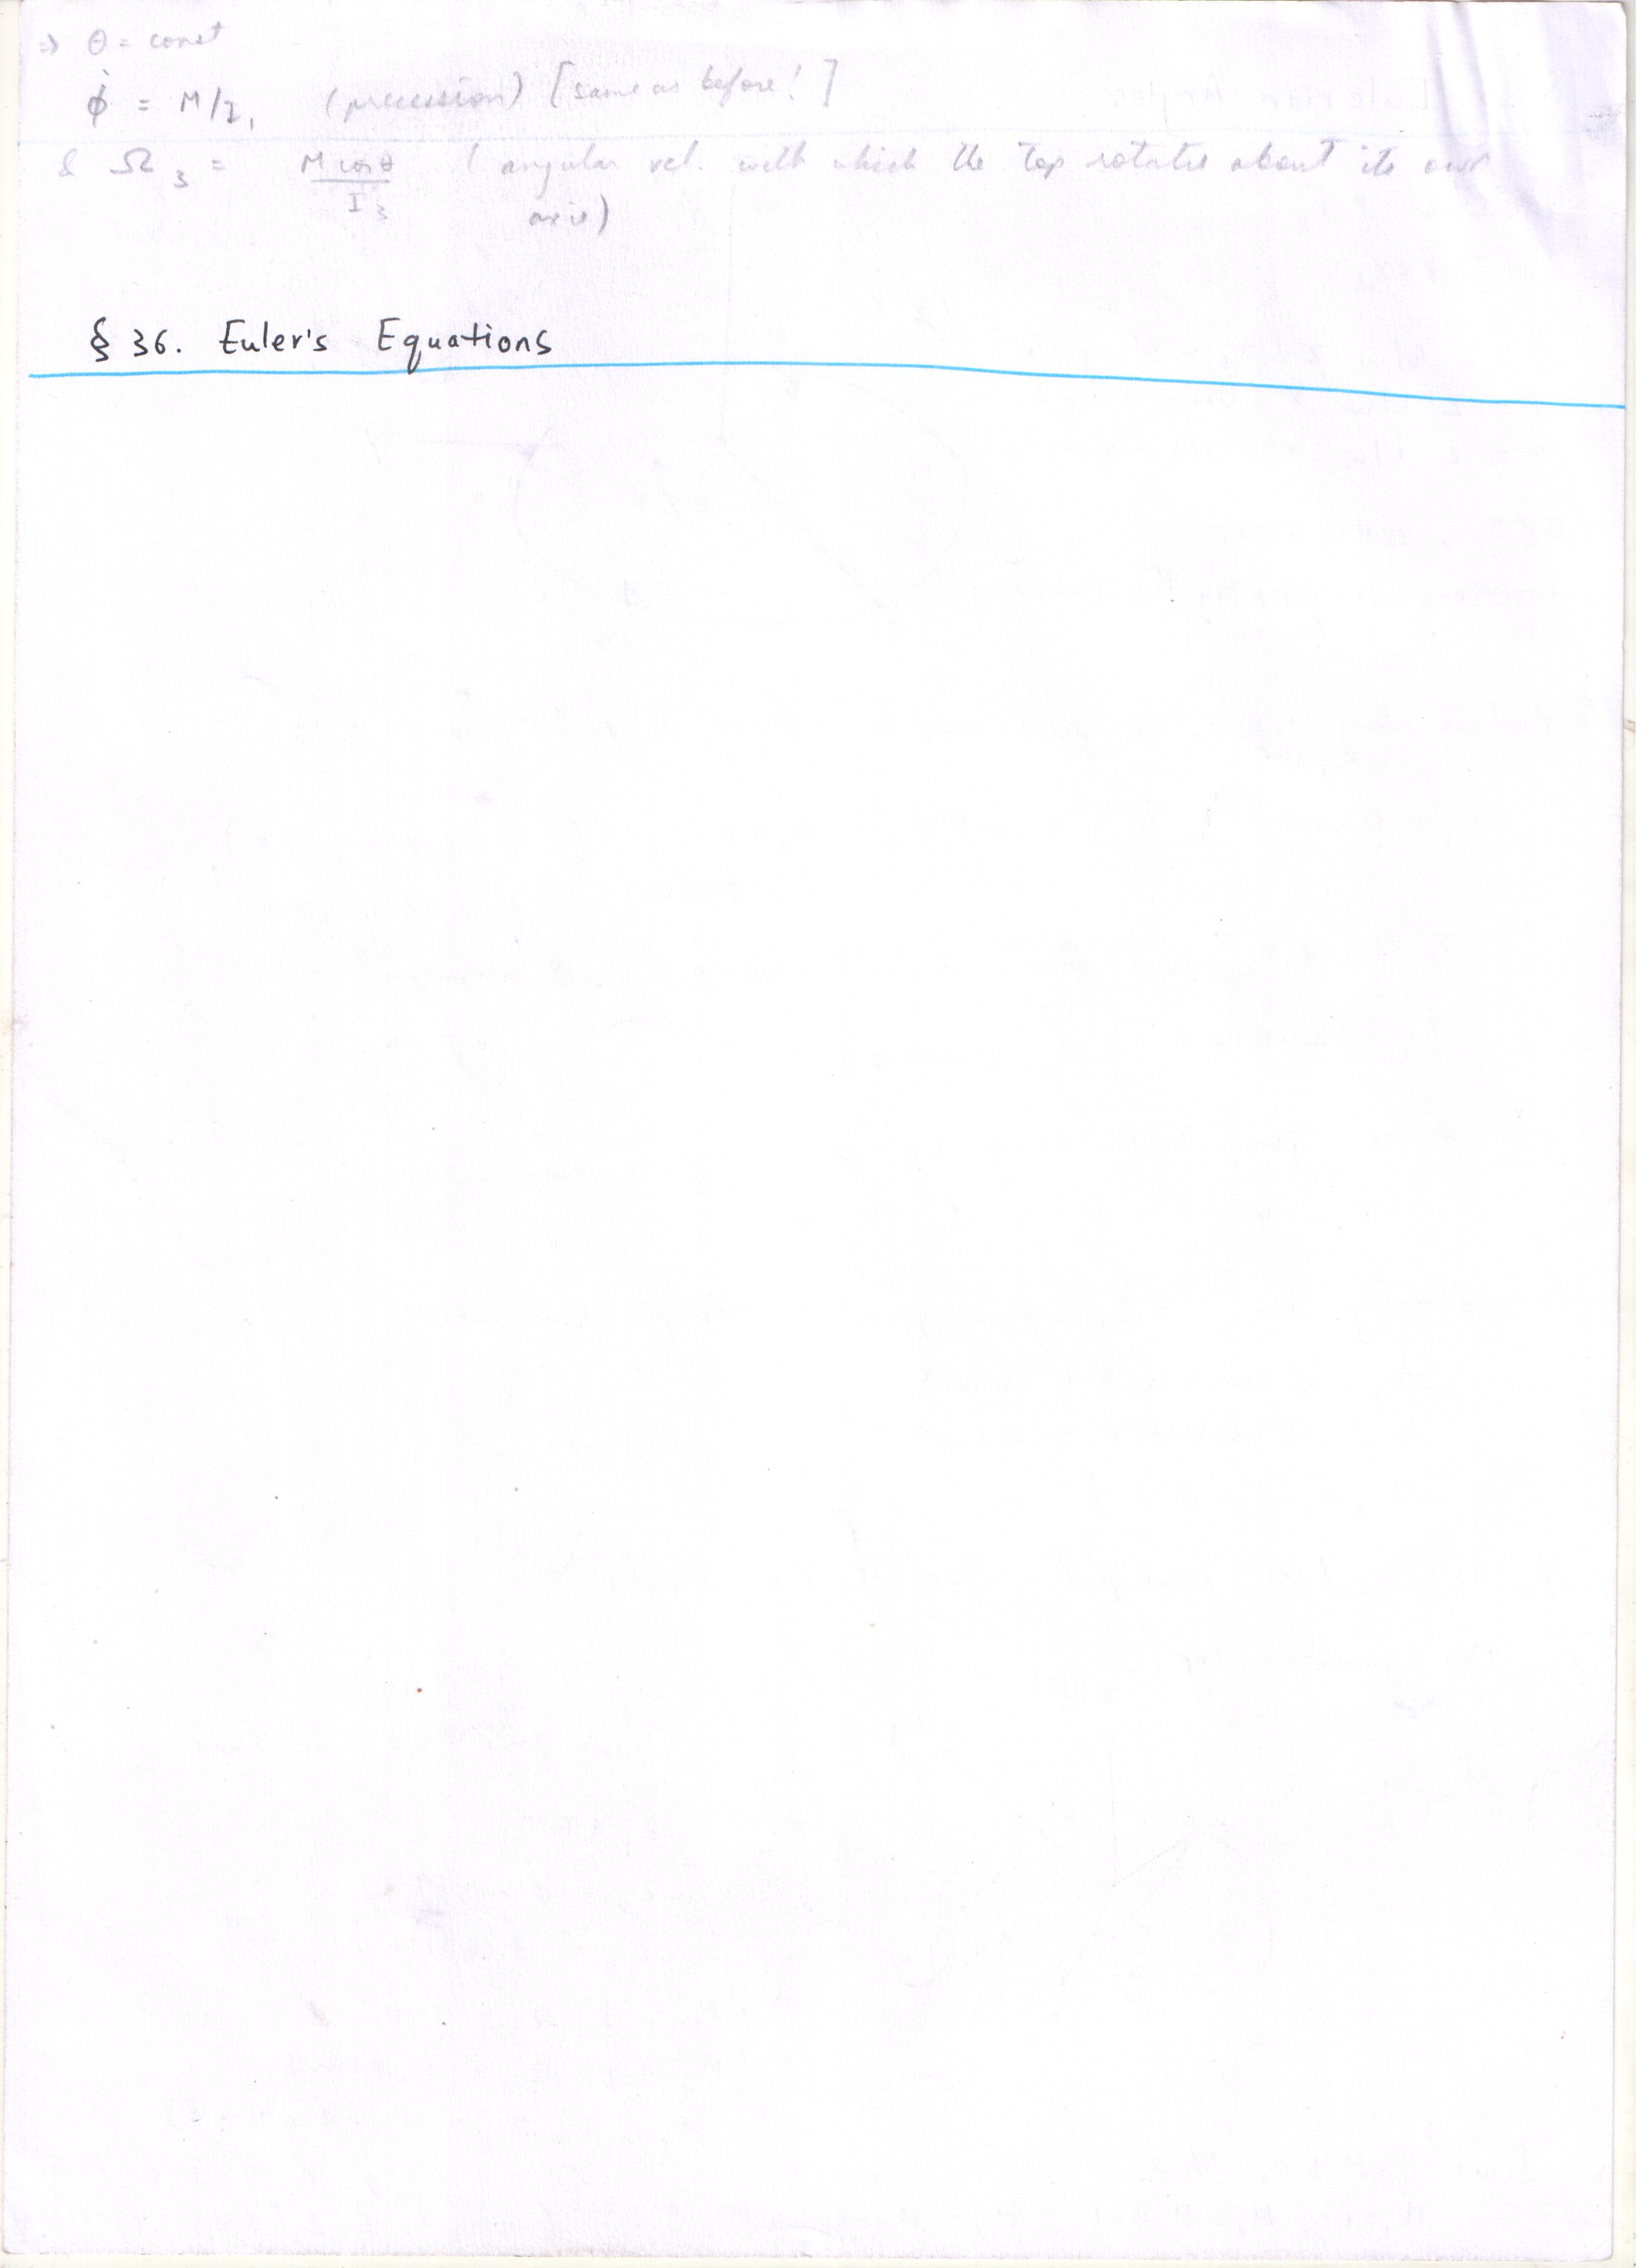 ⇒ θ = const
φ̇ = M/I₁ (precession) [same as before!]
& Ω₃ = M cosθ / I₃ (angular vel. with which the top rotates about its own
axis)
§ 36. Euler's Equations